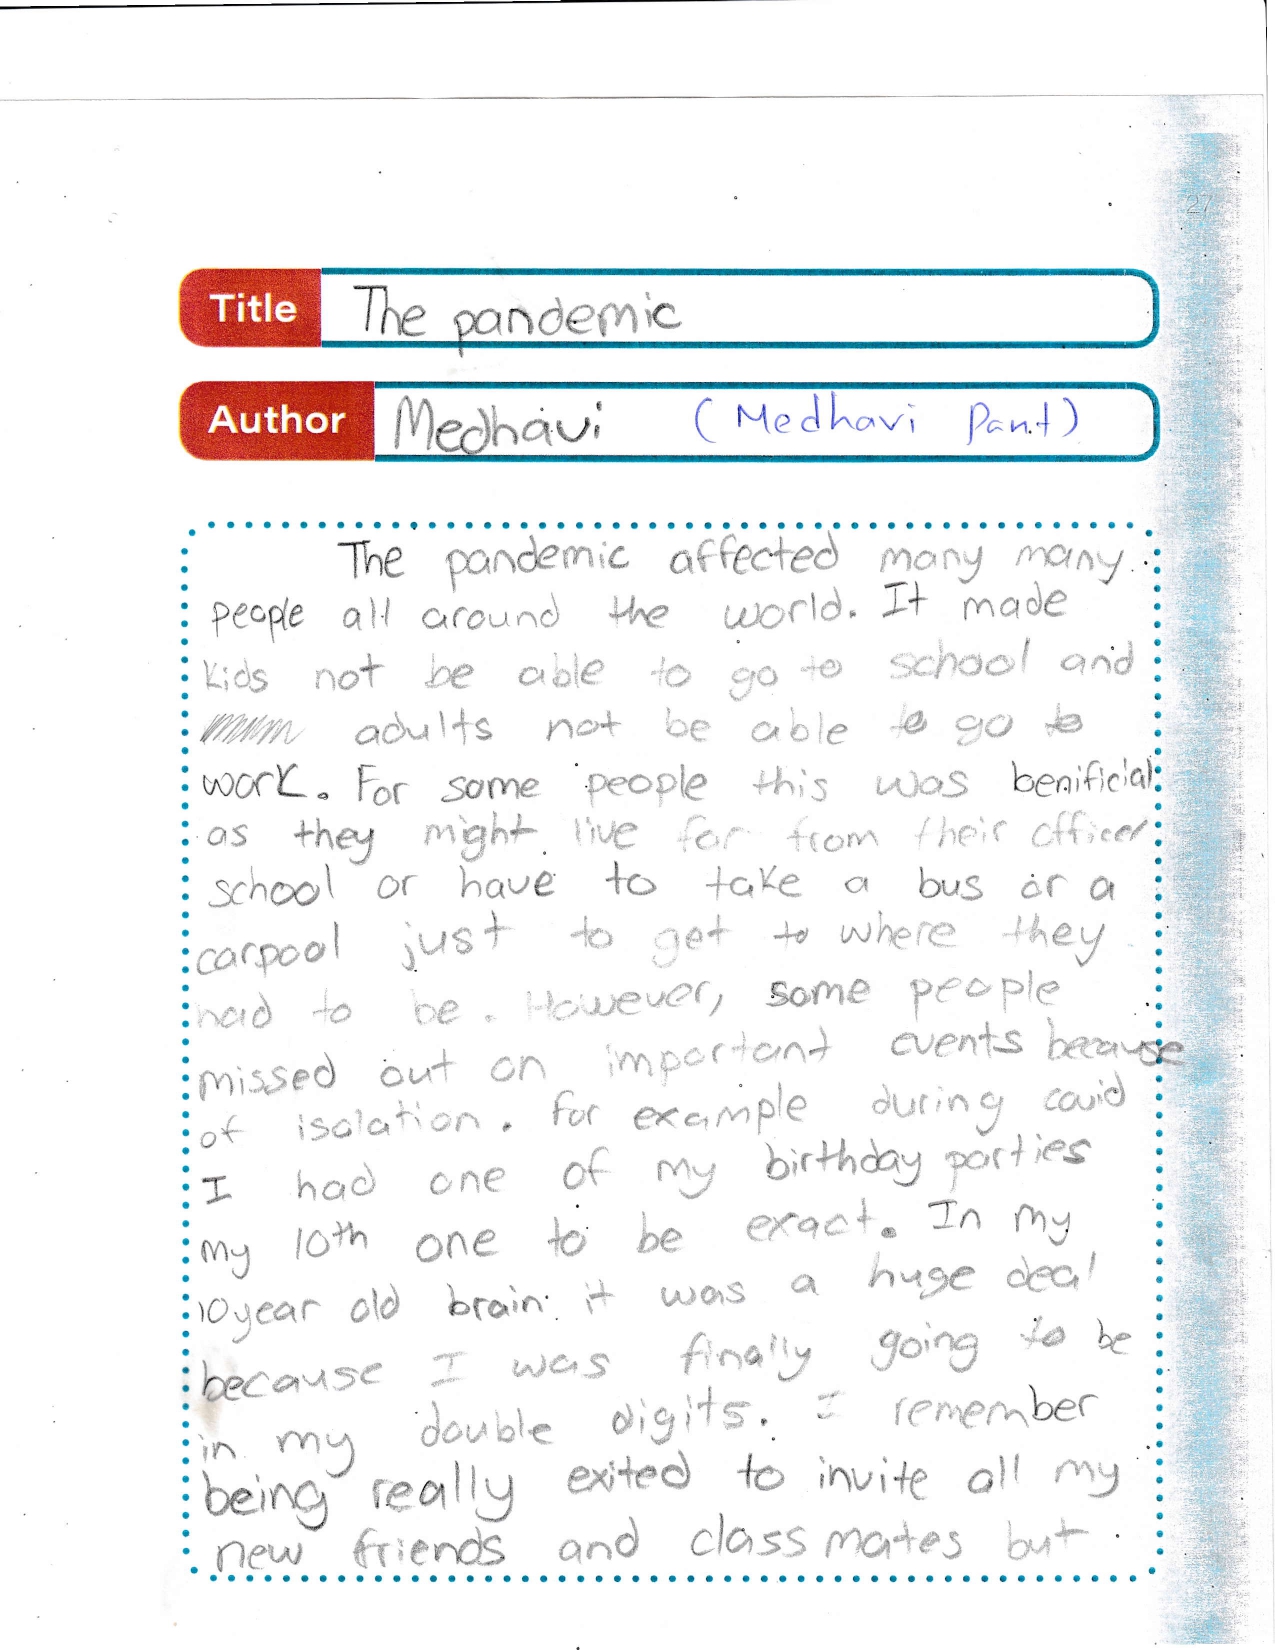 27
Title The pandemic
Author Medhavi (Medhavi Pant)
The pandemic affected many many
people all around the world. It made
kids not be able to go to school and
adults not be able to go to
work. For some people this was benificial
as they might live far from their office
school or have to take a bus or a
carpool just to get to where they
had to be. However, some people
missed out on important events because
of isolation. For example during covid
I had one of my birthday parties
my 10th one to be exact. In my
10 year old brain it was a huge deal
because I was finally going to be
in my double digits. I remember
being really exited to invite all my
new friends and classmates but